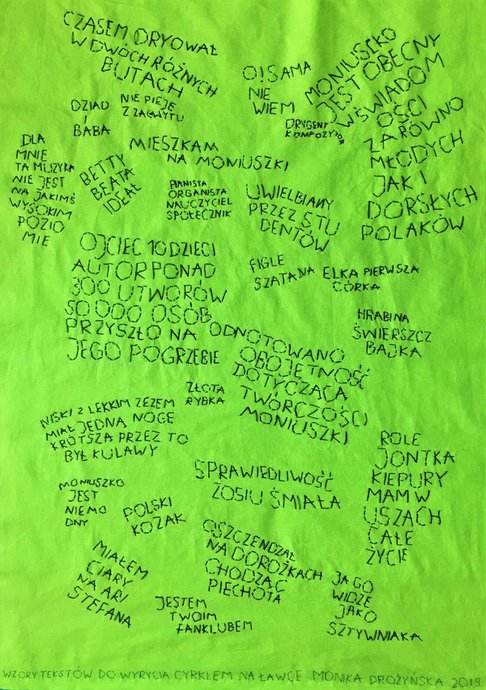 CZASEM DRYOWAŁ
W DWÓCH RÓŻNYCH
BUTACH
O! SAMA
NIE
WIEM
MONIUSZKO
JEST OBECNY
W ŚWIADOM
OŚCI
ZARÓWNO
MŁODYCH
JAK I
DORSŁYCH
POLAKÓW
DZIAD
I
BABA
NIE PIEJĘ
Z ZACWYTU
DRYGENT
KOMPOZYTOR
DLA
MNIE
TA MUZYKA
NIE JEST
NA JAKIMŚ
WYSOKIM
POZIO
MIE
MIESZKAM
NA MONIUSZKI
BETTY
BEATA
IDEAŁ
PIANISTA
ORGANISTA
NAUCZYCIEL
SPOŁECZNIK
UWIELBIANY
PRZEZ STU
DENTÓW
OJCIEC 10 DZIECI
AUTOR PONAD
300 UTWORÓW
50 000 OSÓB
PRZYSZŁO NA
JEGO POGRZEBIE
FIGLE
SZATANA
ELKA PIERWSZA
CÓRKA
HRABINA
ŚWIERSZCZ
BAJKA
ODNOTOWANO
OBOJĘTNOŚĆ
DOTYCZĄCĄ
TWÓRCZOŚCI
MONIUSZKI
ZŁOTA
RYBKA
NISKI Z LEKKIM ZEZEM
MIAŁ JEDNĄ NOGĘ
KRÓTSZĄ PRZEZ TO
BYŁ KULAWY
ROLĘ
JONTKA
KIEPURY
MAM W
USZACH
CAŁE
ŻYCIE
SPRAWIEDLIWOŚĆ
ZOSIU ŚMIAŁA
MONIUSZKO
JEST
NIEMO
DNY
POLSKI
KOZAK
OSZCZENDZAŁ
NA DOROŻKACH
CHODZĄC
PIECHOTĄ
MIAŁEM
CIARY
NA ARI
STEFANA
JESTEM
TWOIM
FANKLUBEM
JA GO
WIDZĘ
JAKO
SZTYWNIAKA
WZORY TEKSTÓW DO WYRYCIA CYRKLEM NA ŁAWCE MONIKA DROŻYŃSKA 2019